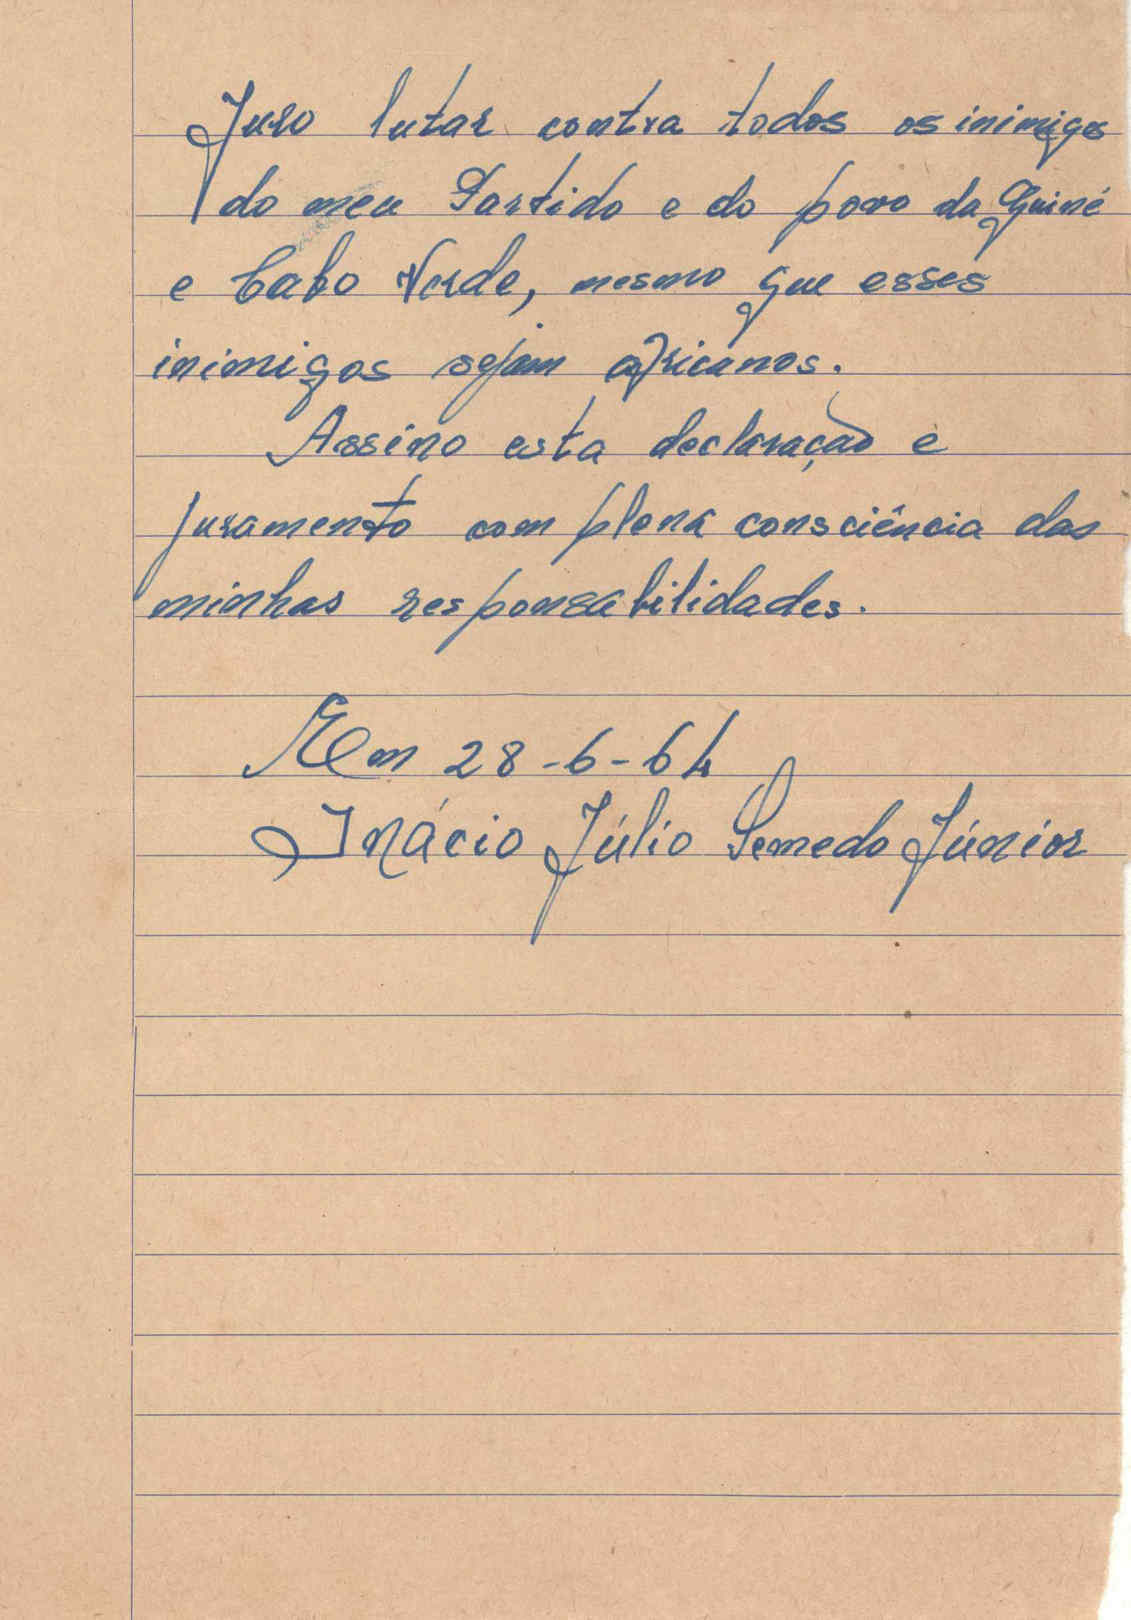 Juro lutar contra todos os inimigos
do meu Partido e do povo da Guiné
e Cabo Verde, mesmo que esses
inimigos sejam africanos.
Assino esta declaração e
juramento com plena consciência das
minhas responsabilidades.
Em 28-6-64
Inácio Júlio Semedo Júnior